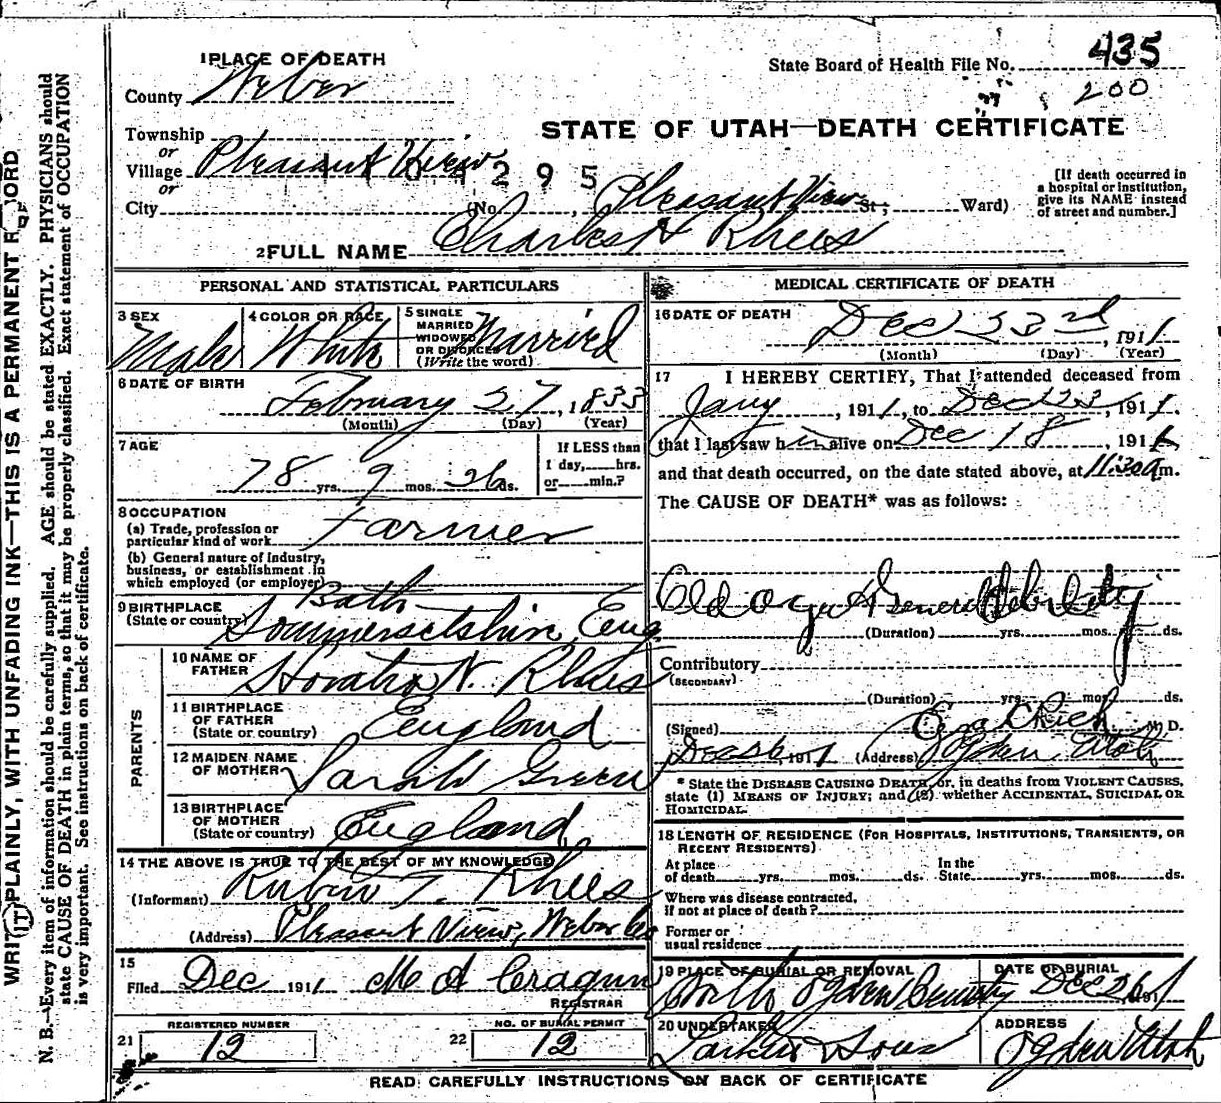 1 PLACE OF DEATH
State Board of Health File No. 435
200
County Weber
STATE OF UTAH—DEATH CERTIFICATE
Township
or
Village Pleasant View
or
295
City (No. , Pleasant View St; Ward)
[If death occurred in
a hospital or institution,
give its NAME instead
of street and number.]
2 FULL NAME Charles H Rhees
PERSONAL AND STATISTICAL PARTICULARS
3 SEX
Male
4 COLOR OR RACE
White
5 SINGLE
MARRIED
WIDOWED
OR DIVORCED
(Write the word)
Married
6 DATE OF BIRTH
February 27, 1833
(Month) (Day) (Year)
7 AGE
78 yrs. 9 mos. 26 ds.
If LESS than
1 day, hrs.
or min.?
8 OCCUPATION
(a) Trade, profession or
particular kind of work Farmer
(b) General nature of Industry,
business, or establishment in
which employed (or employer)
9 BIRTHPLACE
(State or country)
Bath
Sommersetshire, Eng.
PARENTS
10 NAME OF
FATHER
Horatio N. Rhees
11 BIRTHPLACE
OF FATHER
(State or country)
England
12 MAIDEN NAME
OF MOTHER
Sarah Green
13 BIRTHPLACE
OF MOTHER
(State or country)
England
14 THE ABOVE IS TRUE TO THE BEST OF MY KNOWLEDGE
(Informant) Rubin T. Rhees
(Address) Pleasant View, Weber Co
15
Filed Dec 1911 M A Cragun
REGISTRAR
21 REGISTERED NUMBER
12
22 NO. OF BURIAL PERMIT
12
MEDICAL CERTIFICATE OF DEATH
16 DATE OF DEATH
Dec 23rd, 1911
(Month) (Day) (Year)
17 I HEREBY CERTIFY, That I attended deceased from
Jany, 1911, to Dec 23, 1911.
that I last saw him alive on Dec 18, 1911
and that death occurred, on the date stated above, at 11:30 a m.
The CAUSE OF DEATH* was as follows:
Old age & General debility
(Duration) yrs. mos. ds.
Contributory
(SECONDARY)
(Duration) yrs. mos. ds.
(Signed) Rich M. D.
Dec 26 1911 (Address) Ogden Utah
* State the DISEASE CAUSING DEATH, or, in deaths from VIOLENT CAUSES,
state (1) MEANS OF INJURY; and (2) whether ACCIDENTAL, SUICIDAL OR
HOMICIDAL.
18 LENGTH OF RESIDENCE (FOR HOSPITALS, INSTITUTIONS, TRANSIENTS, OR
RECENT RESIDENTS)
At place
of death yrs. mos. ds.
In the
State yrs. mos. ds.
Where was disease contracted,
if not at place of death?
Former or
usual residence
19 PLACE OF BURIAL OR REMOVAL
North Ogden Cemetery
DATE OF BURIAL
Dec 26 1911
20 UNDERTAKER
Larkin & Sons
ADDRESS
Ogden Utah
READ CAREFULLY INSTRUCTIONS ON BACK OF CERTIFICATE
WRITE PLAINLY, WITH UNFADING INK—THIS IS A PERMANENT RECORD
N. B.—Every item of information should be carefully supplied. AGE should be stated EXACTLY. PHYSICIANS should
state CAUSE OF DEATH in plain terms, so that it may be properly classified. Exact statement of OCCUPATION
is very important. See instructions on back of certificate.